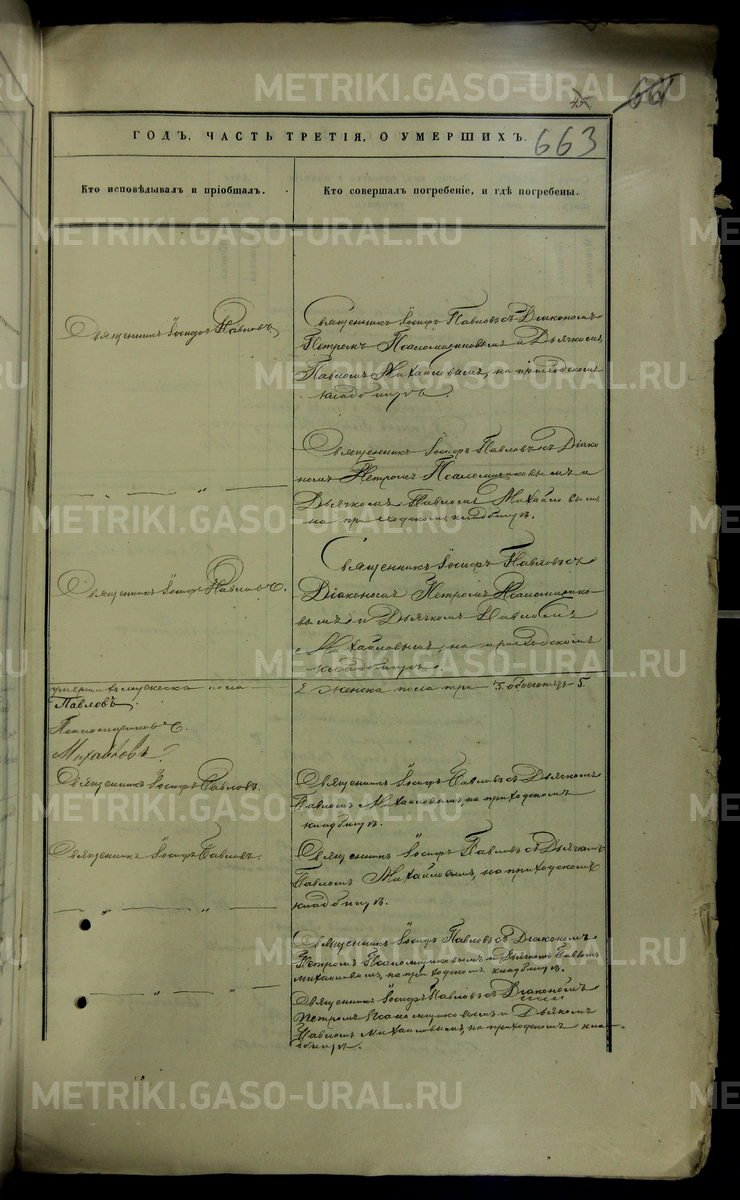 45 661
ГОДЪ, ЧАСТЬ ТРЕТІЯ, О УМЕРШИХЪ. 663
Кто исповѣдывалъ и пріобщалъ.
Кто совершалъ погребеніе, и гдѣ погребены.
Священникъ Іосифъ Павловъ,
Священникъ Іосифъ Павловъ съ Діакономъ
Петромъ Псаломщиковымъ и Дьячкомъ
Павломъ Михайловымъ, на приходскомъ
кладбищѣ.
— „ —
Священникъ Іосифъ Павловъ съ Діако
номъ Петромъ Псаломщиковымъ и
Дьячкомъ Павломъ Михайловымъ
на приходскомъ кладбищѣ.
Священникъ Іосифъ Павловъ.
Священникъ Іосифъ Павловъ съ
Діакономъ Петромъ Псаломщико-
вымъ и Дьячкомъ Павломъ
Михайловымъ, на приходскомъ
кладбищѣ.
умерших мужеска пола
2. женска пола три 3. обоего 5.
Павловъ.
Псаломщиковъ.
Михайловъ
Священникъ Іосифъ Павловъ.
Священникъ Іосифъ Павловъ съ Дьячкомъ
Павломъ Михайловымъ, на приходскомъ
кладбищѣ.
Священникъ Іосифъ Павловъ.
Священникъ Іосифъ Павловъ съ Дьячкомъ
Павломъ Михайловымъ, на приходскомъ
кладбищѣ.
— „ — „ —
Священникъ Іосифъ Павловъ съ Діакономъ
Петромъ Псаломщиковымъ и Дьячкомъ Павломъ
Михайловымъ, на приходскомъ кладбищѣ.
— „ — „ —
Священникъ Іосифъ Павловъ съ Діакономъ
Петромъ Псаломщиковымъ и Дьячкомъ
Павломъ Михайловымъ, на приходскомъ кла-
дбищѣ.
METRIKI.GASO-URAL.RU